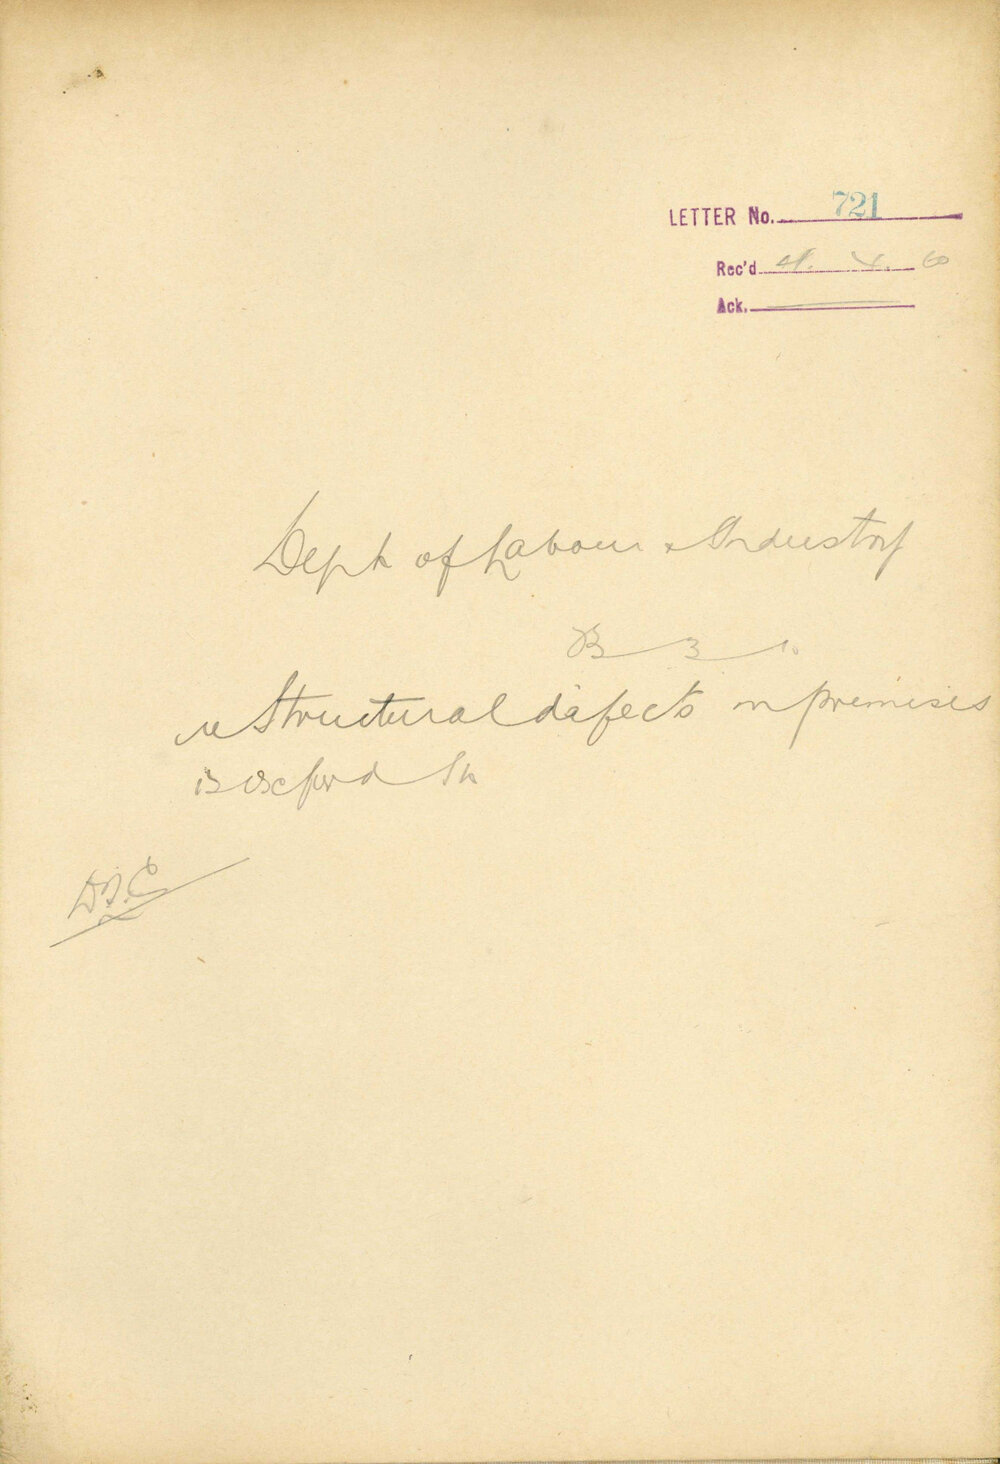 LETTER No. 721
Rec'd
Ack.
Dept of Labour & Industry
re Structural defects in premises
Oxford St